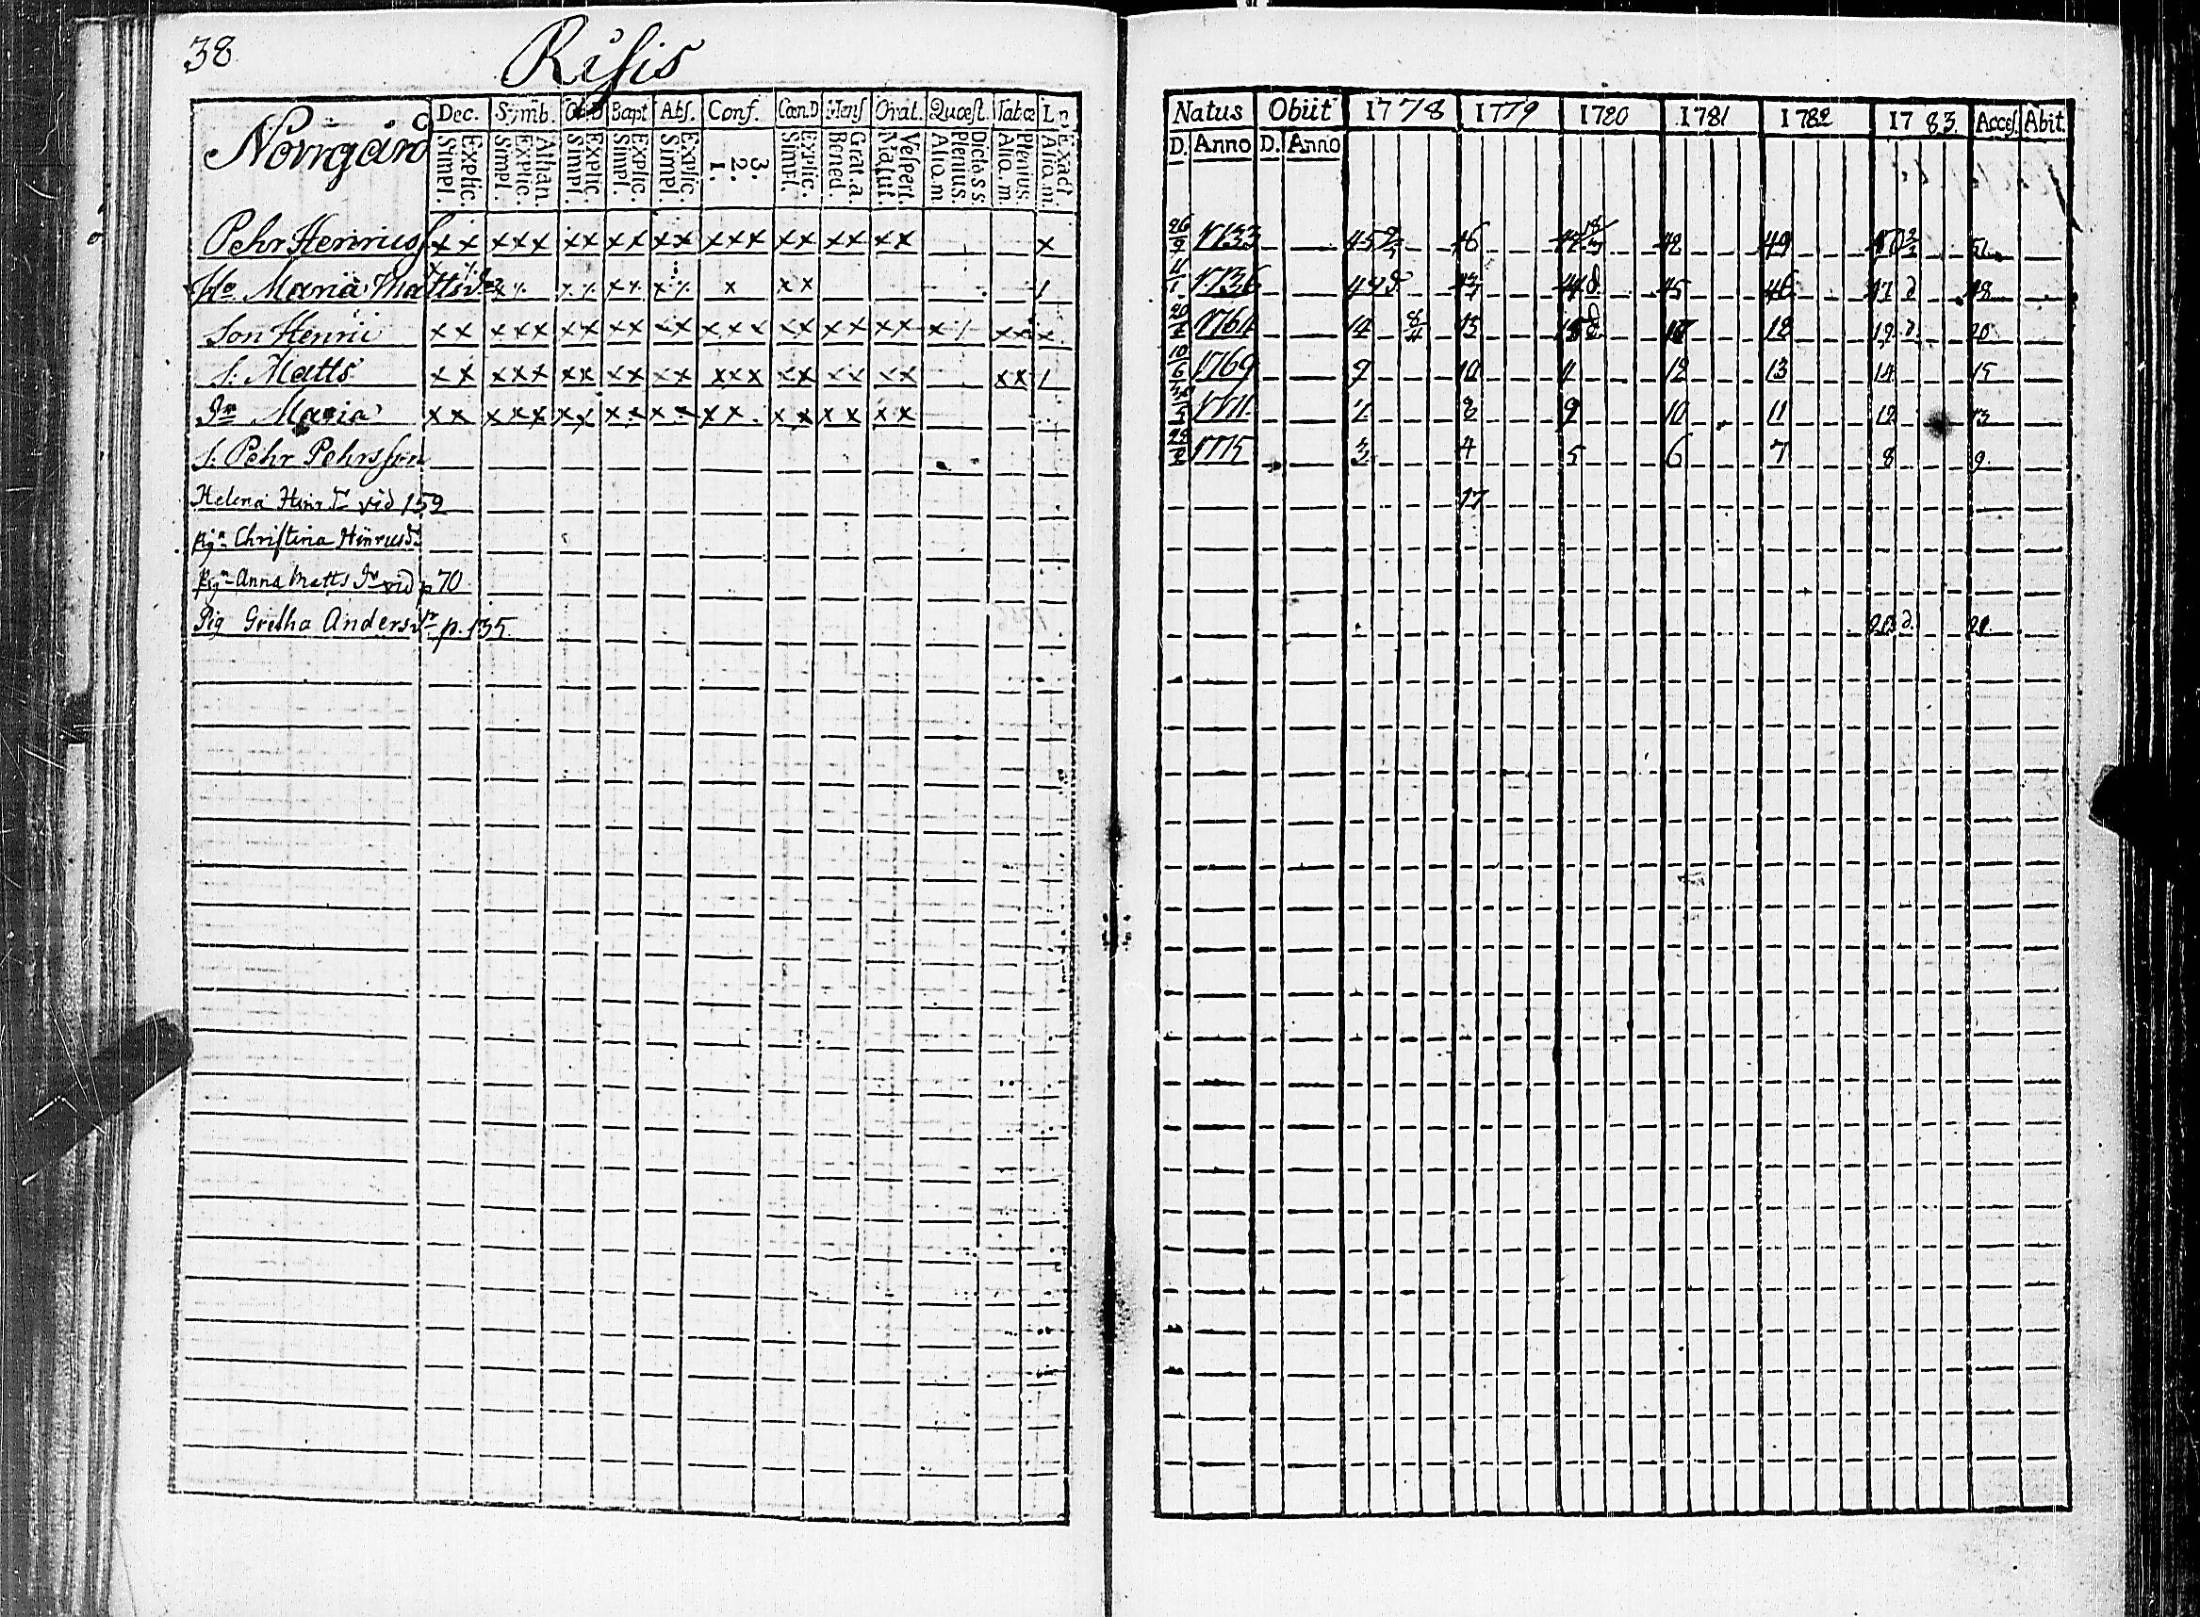 38
Risis
Norrgård
Dec. Symb. Bapt Abs. Conf. Cœn.D Mens Orat. Quæst. Tabæ L
Simpl. Explic. Simpl. Explic. Athan. Simpl. Explic. Simpl. Explic. Simpl. Explic. 1. 2. 3. Simpl. Explic. Bened. Grat.a. Matut. Vespert. Alio.m Plenius. Dicta s.s. Alio.m. Plenius. Alio.m. Exact.
Natus Obiit 1778 1779 1780 1781 1782 1783. Acces. Abit.
D. Anno D. Anno
Pehr Henricss x x x x x x x x x x x x x x x x x x x x x
26/9 1733 45 46 47 48 49 50 51
Ho Maria Matts dr
11/1 1736 43 44 45 46 47 48
Son Henric x x x x x x x x x x x x x x x x x x
20/2 1764 14 15 18 19 20
S: Matts x x x x x x x x x x x x x x x x x x x x x x
10/6 1769 9 10 11 12 13 14 15
Dr Maria x x x x x x x x x x x x x x x x x x x
1771 7 8 9 10 11 12 13
S: Pehr Pehrsson
28/2 1775 3 4 5 6 7 8 9
Helena Hinr dr vid 159
17
pig. Christina Hinricsdr
Pig. Anna Matts dr vid p 70
Pig Gretha Anders dr p. 135.